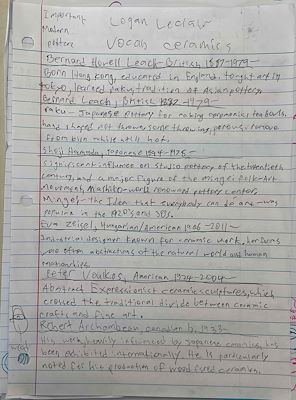 Important
Modern
potters
Logan Leclair
Vocab ceramics
Bernard Howell Leach - British 1887-1979-
Born Hong Kong, educated in England, taught art in
Tokyo, learned raku, tradition of Asian pottery
Bernard Leach, British 1887-1979-
raku - Japanese pottery for making ceremonies tea bowls.
hand shaped not thrown, some throwing, porous, remove
from kiln while still hot.
Shoji Hamada, Japanese 1894-1978-
significant influence on studio pottery of the twentieth
century, and a major figure of the mingei folk-Art
movement, Mashiko-world renowned pottery center,
Mingei - the Idea that everybody can do and was
in the 1920's and 30's.
Eva Zeisel, Hungarian/American 1906-2011-
Industrial designer known for ceramic work, her forms
are often abstractions of the natural world and human
relationships.
Peter Voulkos, American 1924-2004-
Abstract Expressionist ceramic sculptures, which
crossed the traditional divide between ceramic
crafts and fine art.
Robert Archambeau, canadian b. 1933-
His work, heavily influenced by Japanese ceramics, has
been exhibited internationally. He is particularly
noted for his production of wood fired ceramics.